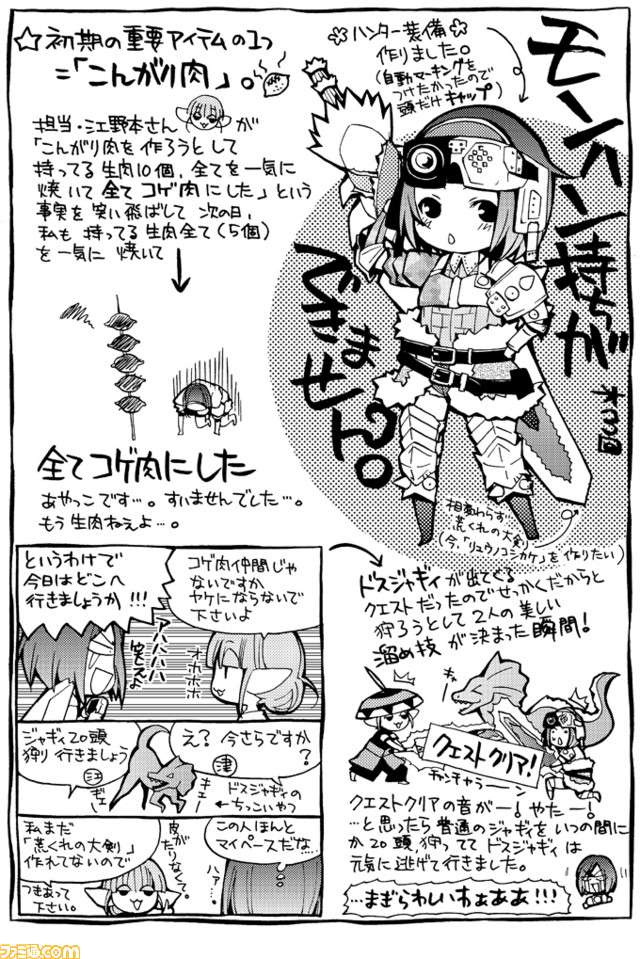 モンハン持ちが
できません。
オ〇2回
❁ハンター装備❁
作りました。
(自動マーキングを
つけたかったので
頭だけキャップ)
☆初期の重要アイテムの1つ
=「こんがり肉」。
担当・江野本さんが
「こんがり肉を作ろうとして
持ってる生肉10個、全てを一気に
焼いて全てコゲ肉にした」という
事実を笑い飛ばして次の日、
私も持ってる生肉全て(5個)
を一気に焼いて
全てコゲ肉にした
あやっこです…。すいませんでした…。
もう生肉ねぇよ…。
相変わらず…
荒くれの大剣
(今、「リュウノコシカケ」を作りたい)
コゲ肉仲間じゃ
ないですか
ヤケにならないで
下さいよ
オホホホ
というわけで
今日はどこへ
行きましょうか!!!
アハハハ
笑えよ
え?今さらですか
?
津
ジャギィ20頭
狩り行きましょう
江
ギェー
キェー
ドスジャギィの
ちっこいやつ
この人ほんと
マイペースだな…
ハァ…
私まだ
「荒くれの大剣」
作れてないので
皮がたりなくて。
つきあって
下さい。
ドスジャギィが出てくる
クエストだったのでせっかくだからと
狩ろうとして2人の美しい
溜め技が決まった瞬間!
クエストクリア!
チャンチャラーン
クエストクリアの音がー!やたー!
…と思ったら普通のジャギィをいつの間に
か20頭狩ってて ドスジャギィは
元気に逃げて行きました。
…まぎらわしいわぁああ!!!
ファミ通.com